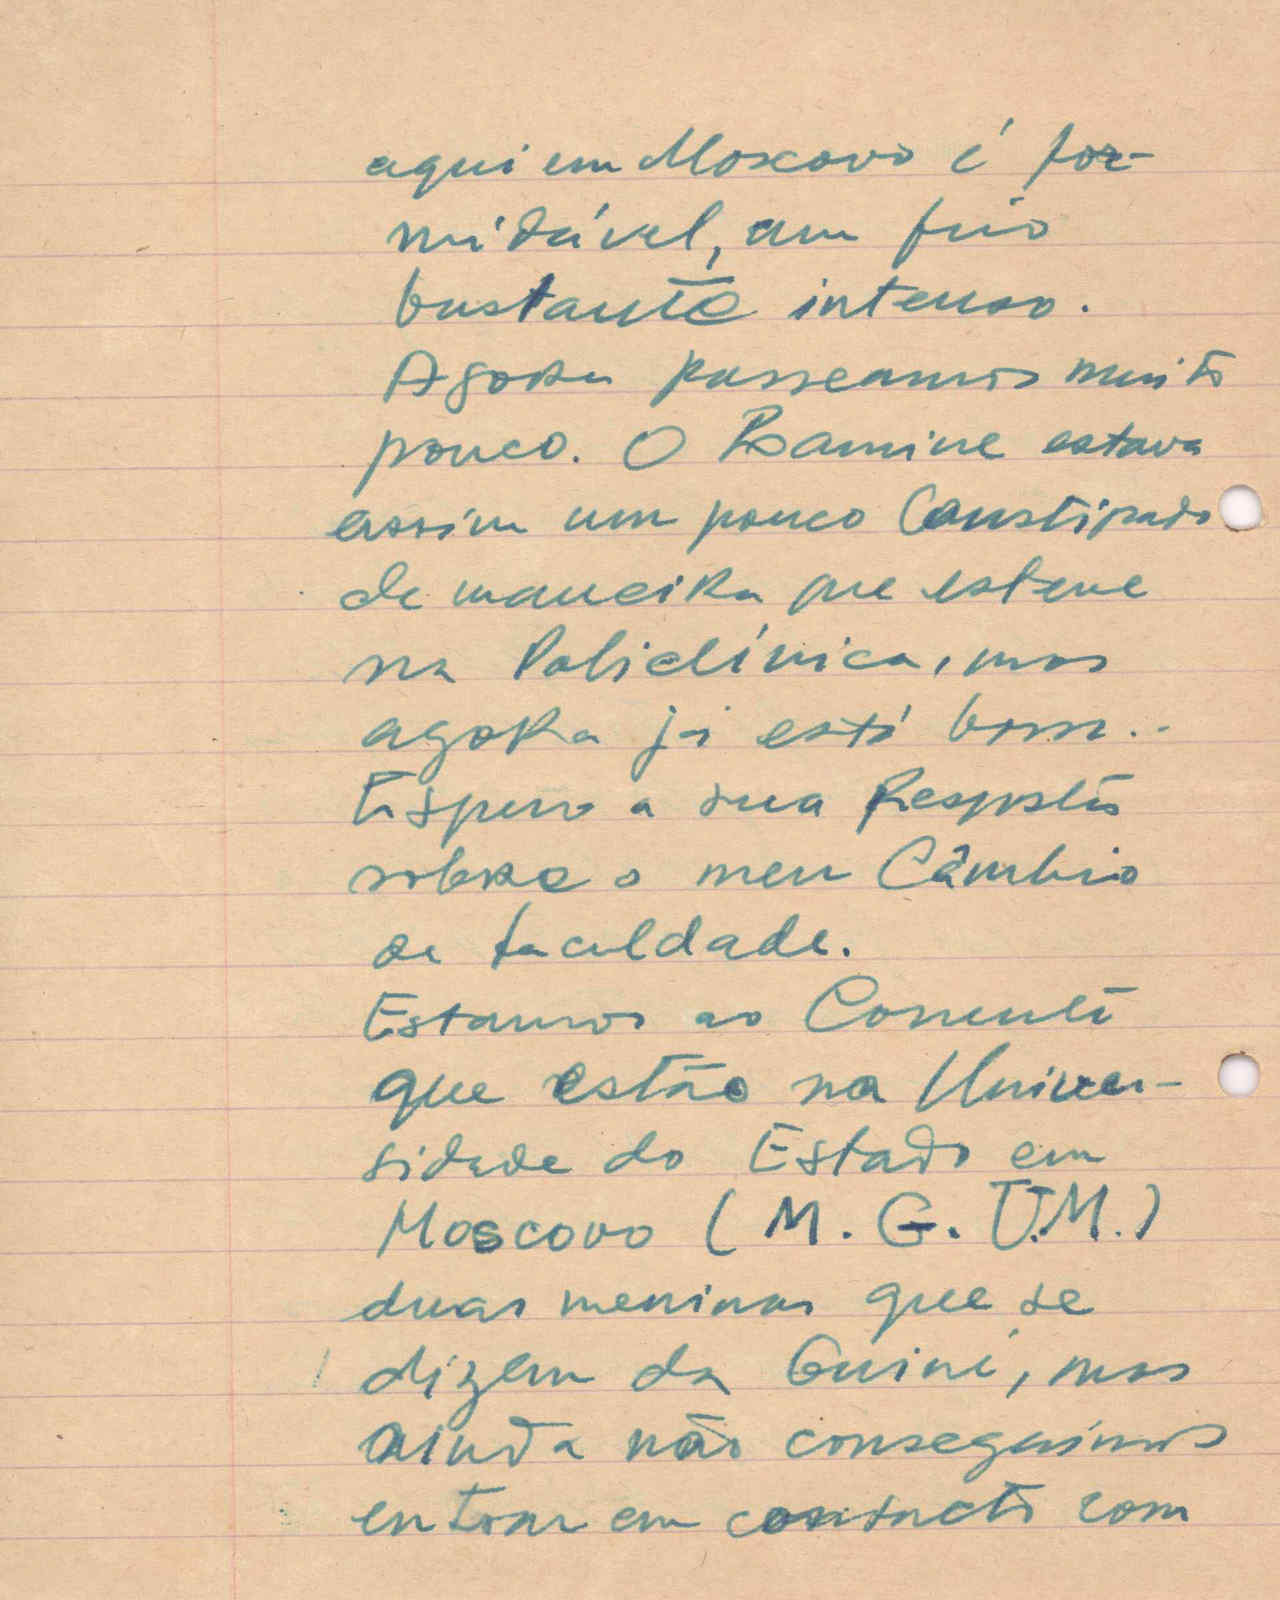 aqui em Moscovo é for-
midável, um frio
bastante intenso.
Agora passeamos muito
pouco. O Bamine estava
assim um pouco Constipado
de maneira que esteve
na Policlínica, mas
agora já está bom..
Espero a sua Resposta
sobre o meu Câmbio
de faculdade.
Estamos ao Corrente
que estão na Univer-
sidade do Estado em
Moscovo (M. G. U.M.)
duas meninas que se
dizem da Guiné, mas
ainda não conseguimos
entrar em contacto com